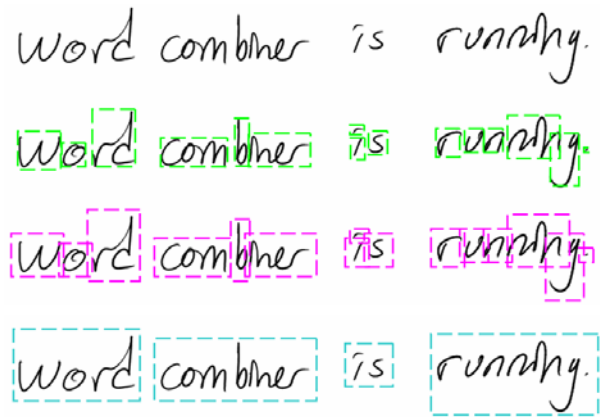 word combiner is running.
word combiner is running.
word combiner is running.
word combiner is running.